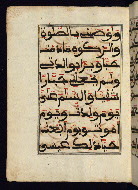 وأوصني بالصلوة
والزكوة ما دمت
حيا وبرا بوالدتي
ولم يجعلني جبارا
شقيا والسلم علي
يوم ولدت ويوم
أموت ويوم أبعث
حيا ذلك عيسى